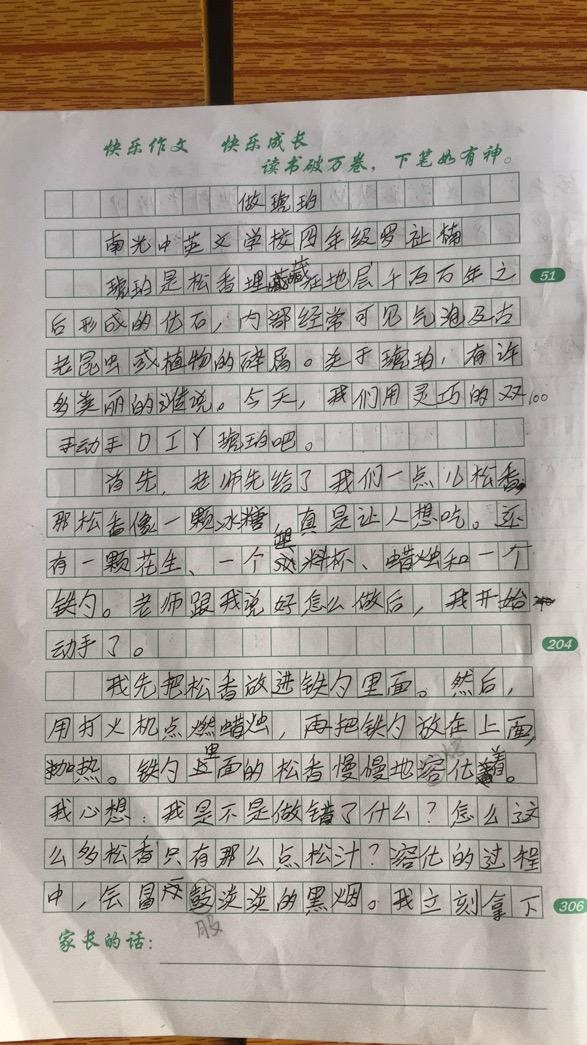 快乐作文 快乐成长
读书破万卷，下笔如有神。
做琥珀
南光中英文学校四年级罗祉楠
琥珀是松香埋藏在地层千百万年之
51
后形成的化石，内部经常可见气泡及古
老昆虫或植物的碎屑。关于琥珀，有许
多美丽的传说。今天，我们用灵巧的双
100
手动手DIY琥珀吧。
首先，老师先给了我们一点儿松香，
那松香像一颗冰糖，真是让人想吃。还
有一颗花生、一个塑料杯、蜡烛和一个
铁勺。老师跟我说好怎么做后，我开始
动手了。
204
我先把松香放进铁勺里面。然后，
用打火机点燃蜡烛，再把铁勺放在上面
加热。铁勺里面的松香慢慢地溶化着。
熔
我心想：我是不是做错了什么？怎么这
么多松香只有那么点松汁？溶化的过程
中，会冒一鼓淡淡的黑烟。我立刻拿下
306
股
家长的话：